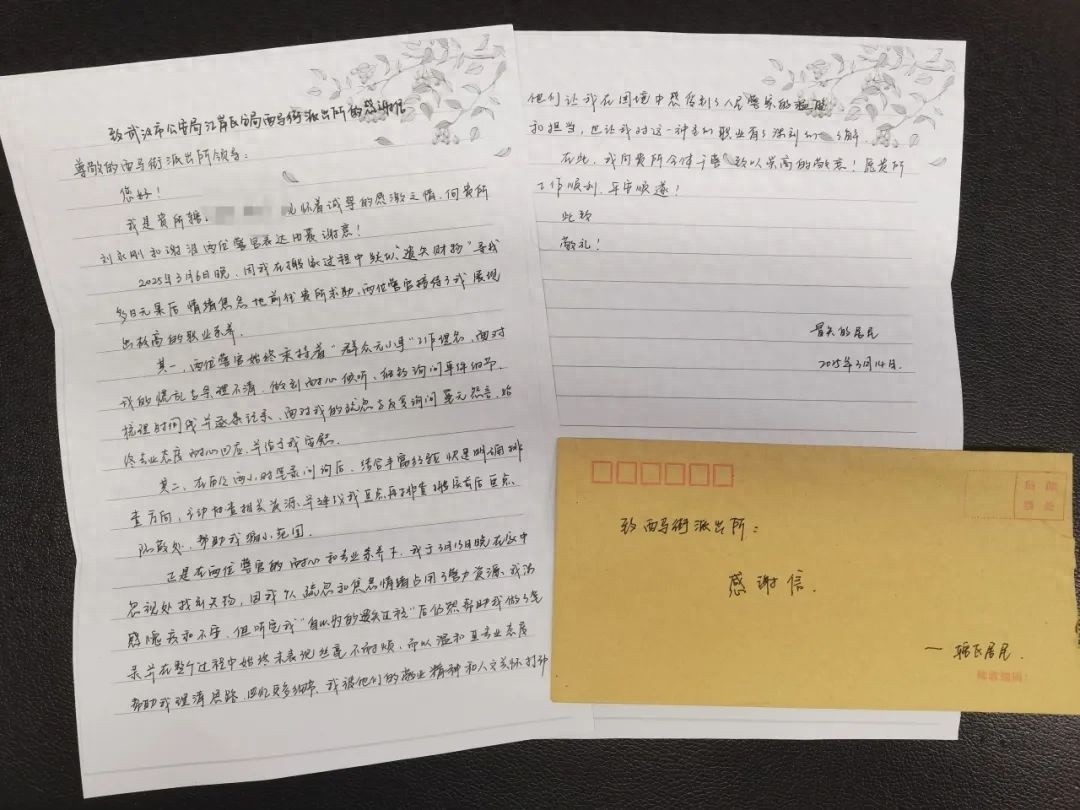 致武汉市公安局江岸区分局西马街派出所的感谢信
尊敬的西马街派出所领导：
您好！
我是贵所辖 怀着诚挚的感激之情，向贵所
刘永刚和谢淮两位警官表达由衷谢意！
2025年3月6日晚，因我在搬家过程中疑似"遗失财物"寻找
多日无果后情绪焦急地前往贵所求助，两位警官接待了我展现
出极高的职业素养。
其一，两位警官始终秉持着"群众无小事"工作理念，面对
我的慌乱与条理不清，做到耐心倾听、细致询问事件细节、
梳理时间线并逐条记录，面对我的疑虑与反复询问毫无怨言，始
终专业态度耐心回应，并给予我安慰。
其二，在历经两小时笔录问询后，结合丰富经验快速明确排
查方向，主动协查相关资源，并建议我重点再排查搬家前后重点、
隐蔽处，帮助我缩小范围。
正是在两位警官的耐心和专业素养下，我于3月13日晚在家中
忽视处找到失物，因我个人疏忽和焦急情绪占用了警户资源，我深
感愧疚和不安，但听完我"自以为的遗失过程"后仍然帮助我做了笔
录并在整个过程中始终未表现丝毫不耐烦，而以温和且专业态度
帮助我理清思路，回忆更多细节，我被他们的敬业精神和人文关怀打动
他们让我在困境中感受到了人民警察的温暖
和担当，也让我对这一神圣的职业有了深刻的了解
在此，我向贵所全体干警致以崇高的敬意！愿贵所
工作顺利，平安顺遂！
此致
敬礼！
冒失的居民
2025年3月14日.
致西马街派出所：
感谢信.
一辖区居民.